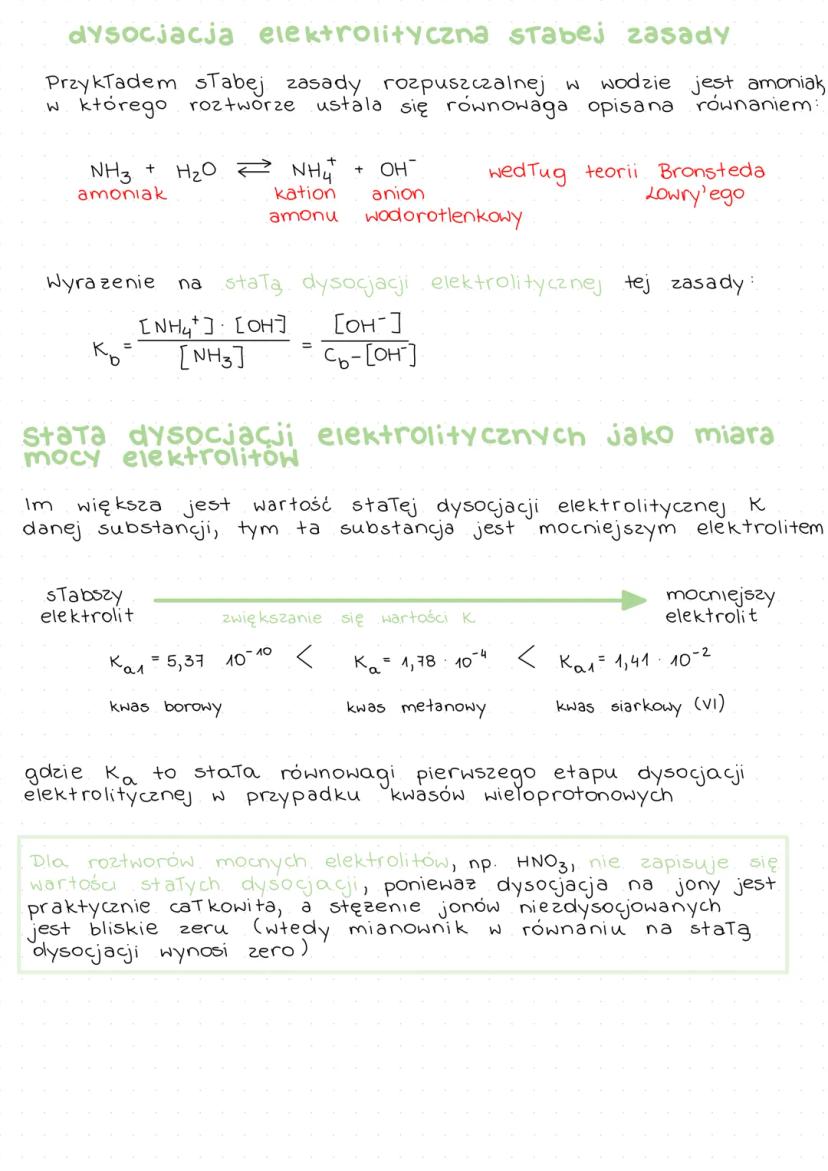 dysocjacja elektrolityczna słabej zasady
Przykładem słabej zasady rozpuszczalnej w wodzie jest amoniak,
w którego roztworze ustala się równowaga opisana równaniem:
NH₃ + H₂O ⇌ NH₄⁺ + OH⁻ według teorii Bronsteda
amoniak kation anion Lowry'ego
amonu wodorotlenkowy
Wyrażenie na stałą dysocjacji elektrolitycznej tej zasady:
K_b = [NH₄⁺] · [OH⁻] / [NH₃] = [OH⁻] / C_b-[OH⁻]
stała dysocjacji elektrolitycznych jako miara
mocy elektrolitów
Im większa jest wartość stałej dysocjacji elektrolitycznej K
danej substancji, tym ta substancja jest mocniejszym elektrolitem
słabszy mocniejszy
elektrolit zwiększanie się wartości K elektrolit
K_a1 = 5,37 10⁻¹⁰ < K_a = 1,78 · 10⁻⁴ < K_a1 = 1,41 · 10⁻²
kwas borowy kwas metanowy kwas siarkowy (VI)
gdzie K_a to stała równowagi pierwszego etapu dysocjacji
elektrolitycznej w przypadku kwasów wieloprotonowych
Dla roztworów mocnych elektrolitów, np. HNO₃, nie zapisuje się
wartości stałych dysocjacji, ponieważ dysocjacja na jony jest
praktycznie całkowita, a stężenie jonów niezdysocjowanych
jest bliskie zeru (wtedy mianownik w równaniu na stałą
dysocjacji wynosi zero)